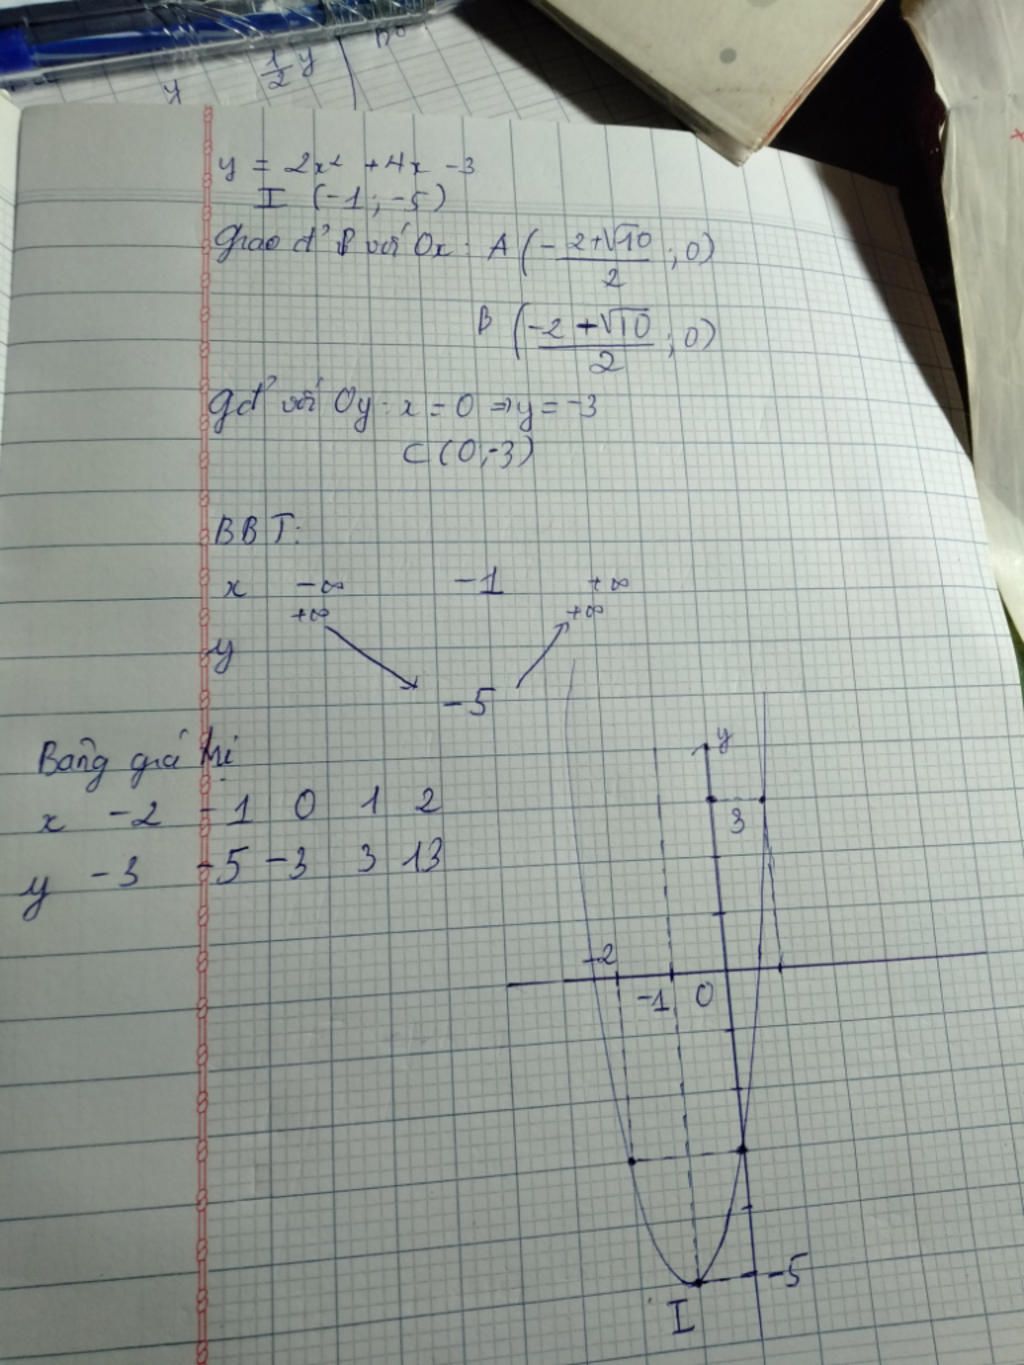 1/2 y
y
y = 2x² + 4x - 3
I (-1; -5)
Giao đ' P với Ox: A (- 2+√10 / 2 ; 0)
B (-2 + √10 / 2 ; 0)
gđ' với Oy: x = 0 ⇒ y = -3
C (0; -3)
BBT:
x -∞ -1 +∞
+∞ +∞
y
-5
Bảng giá trị
x -2 -1 0 1 2
y -3 -5 -3 3 13
y
3
-2
-1 0
-5
I